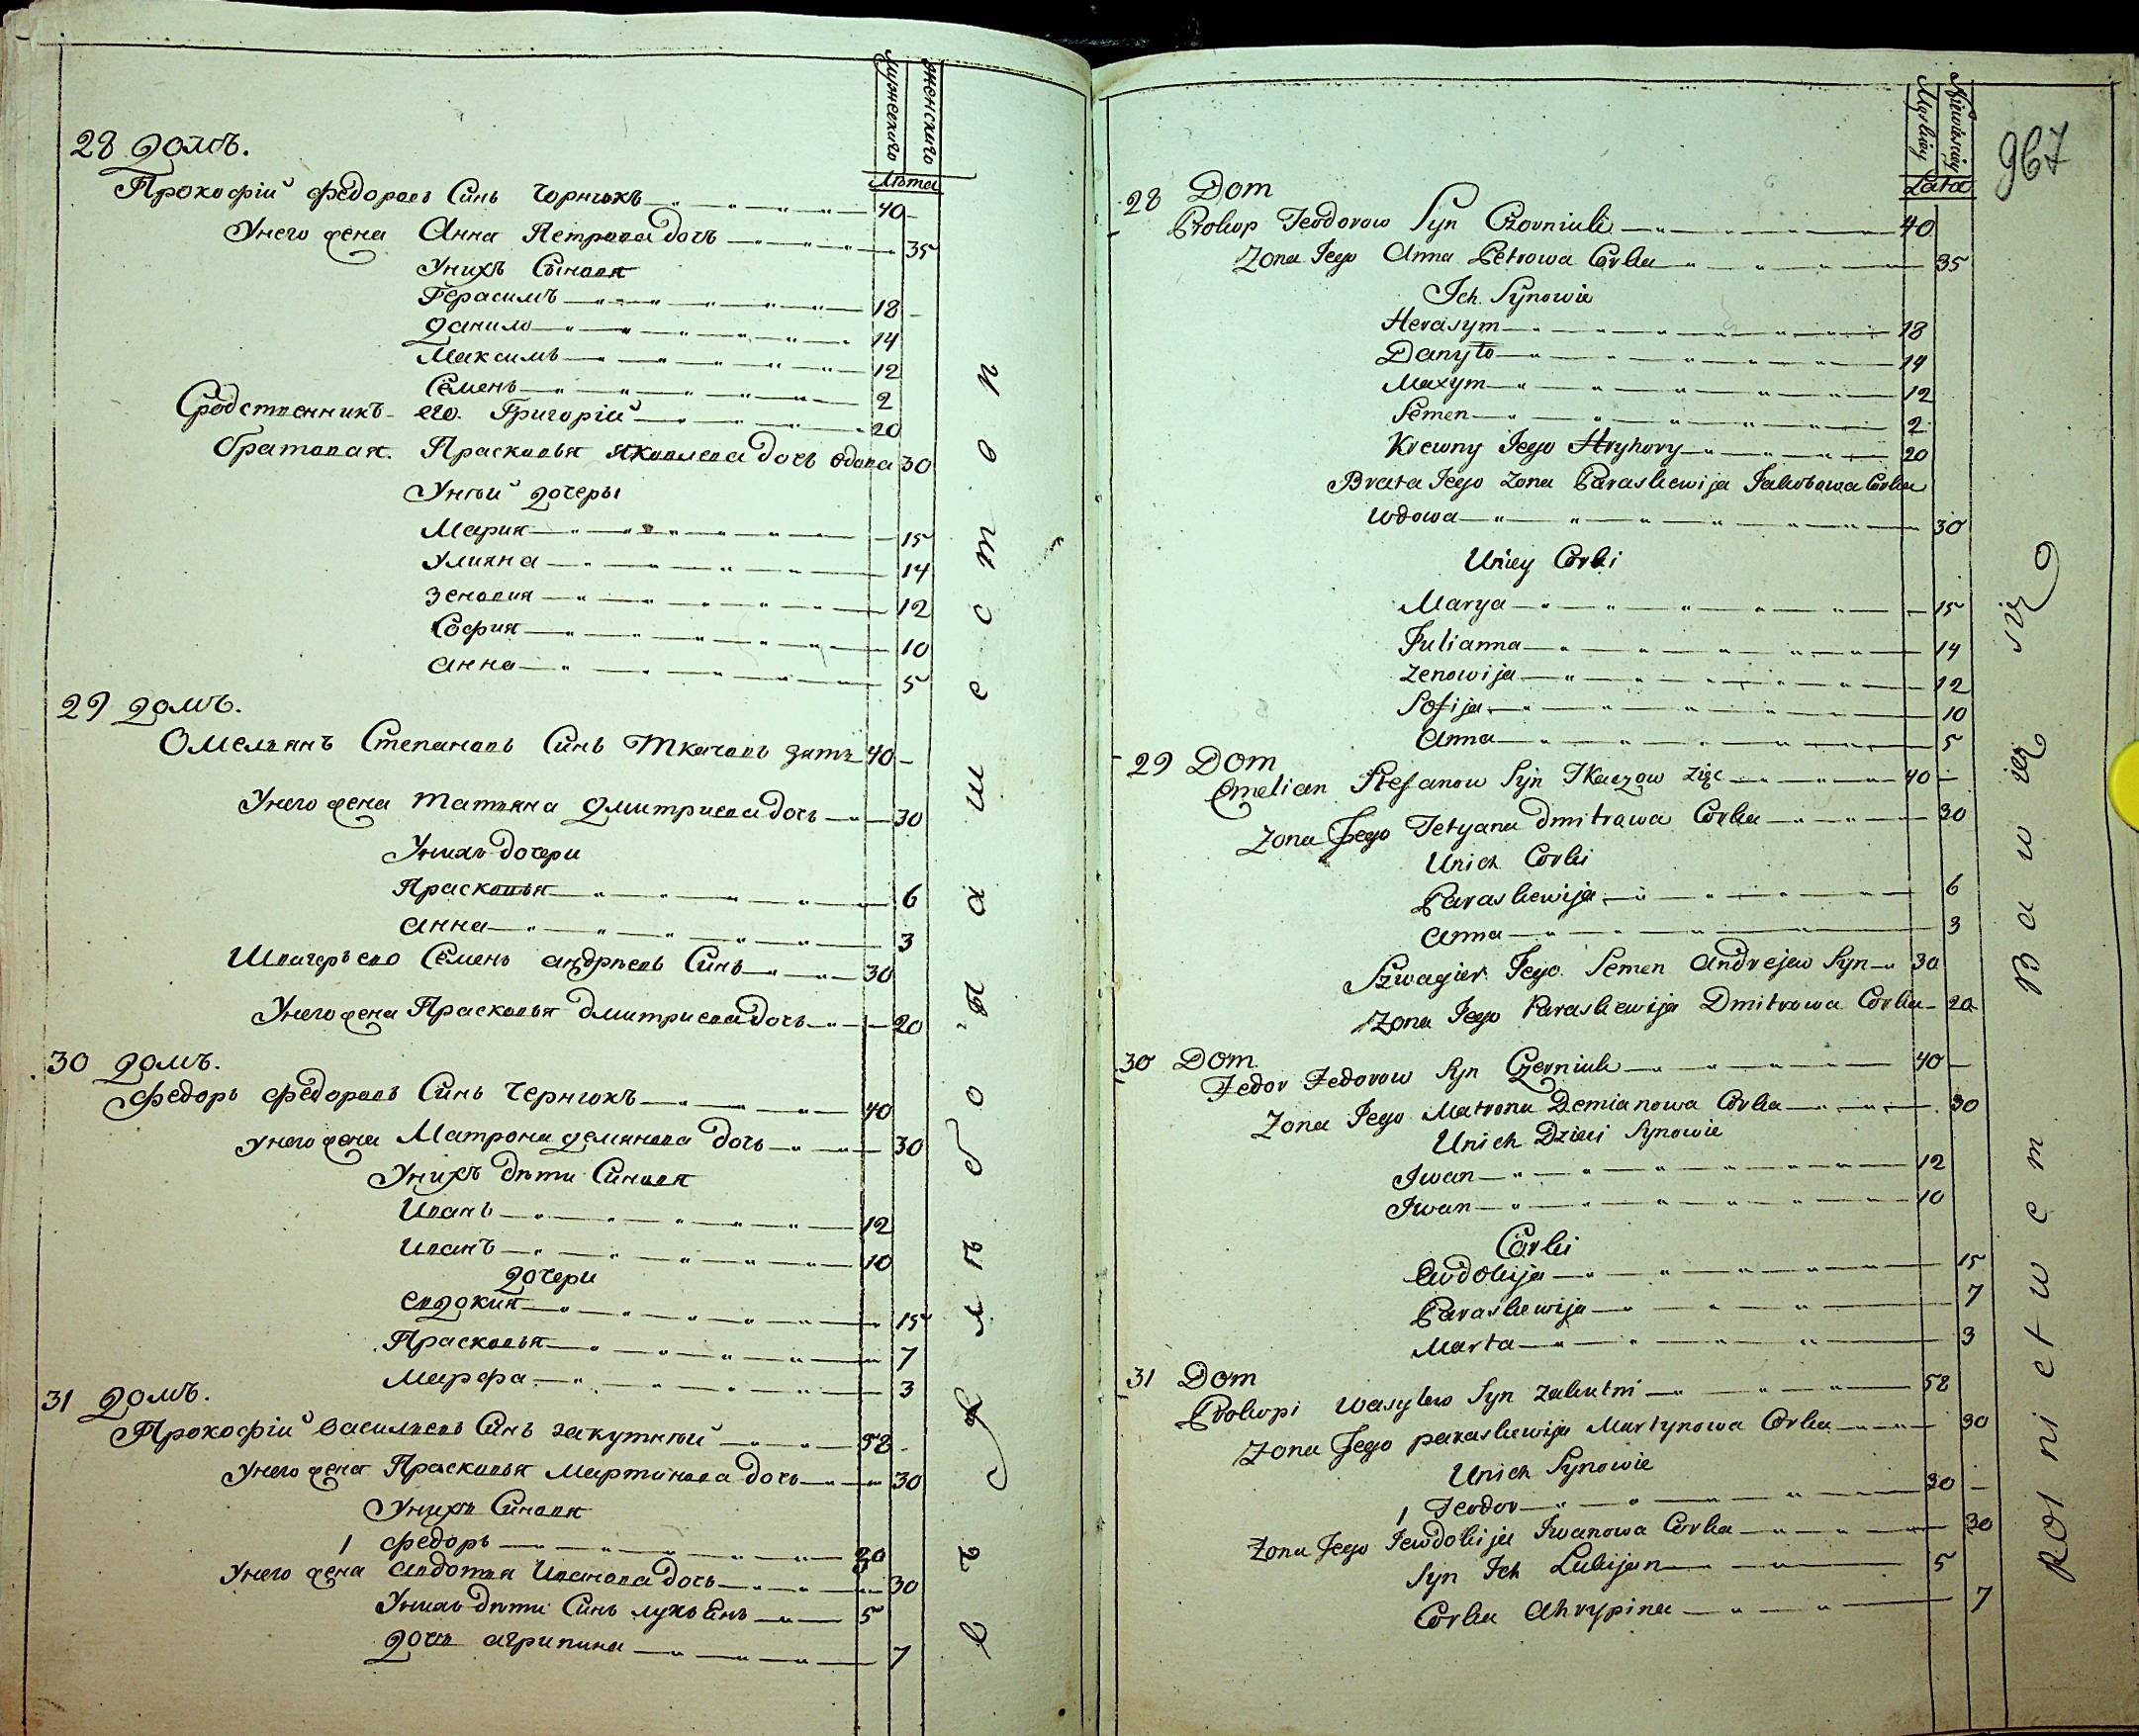 мужеского
женского
Лѣта
28 Домъ.
Прокофій Федоровъ Синъ Чорнюкъ 40
Унего жена Анна Петрова дочь 35
Унихъ Сыновя
Герасимъ 18
Данило 14
Максимъ 12
Семенъ 2
Сродственникъ его Григорій 20
братовая Прасковья Яковлева дочь вдова 30
Унюй дочеры
Мария 15
Улияна 14
Зеновия 12
София 10
Анна 5
29 Домъ.
Омельянъ Степановъ Синъ Ткачовъ зять 40
Унего жена Татьяна Дмитриева дочь 30
Унихъ дочери
Прасковья 6
Анна 3
Швагеръ его Семенъ Андрѣевъ Синъ 30
Унего жена Прасковья Дмитриева дочь 20
30 Домъ.
Федоръ Федоровъ Синъ Чернюкъ 40
Унего жена Матрона Демянова дочь 30
Унихъ дѣти Синовя
Иванъ 12
Иванъ 10
Дочери
Евдокия 15
Прасковья 7
Марфа 3
31 Домъ.
Прокофій Васильевъ Синъ Закутный 58
Унего жена Прасковья Мартинова дочь 30
Унихъ Синовя
1 Федоръ 30
Унего жена Авдотья Иванова дочь 30
Унихъ дѣти Синъ Лукъянъ 5
Дочь Агрипина 7
Męskiey
Niewiesciey
Lata
967
28 Dom
Prokop Teodorow Syn Czorniuk 40
Zona Jego Anna Petrowa Corka 35
Ich Synowie
Herasym 18
Danyło 14
Maxym 12
Semen 2
Krewny Jego Hryhory 20
Brata Jego Zona Paraskewija Jakobowa Corka
Wdowa 30
Uniey Corki
Marya 15
Julianna 14
Zenowija 12
Sofija 10
Anna 5
29 Dom
Omelian Stefanow Syn Tkaczow Zięc 40
Zona Jego Tetyana Dmitrowa Corka 30
Unich Corki
Paraskewija 6
Anna 3
Szwagier Jego Semen Andrejew Syn 30
Zona Jego Paraskewija Dmitrowa Corka 20
30 Dom
Fedor Fedorow Syn Czerniuk 40
Zona Jego Matrona Demianowa Corka 30
Unich Dzieci Synowie
Iwan 12
Iwan 10
Corki
Ewdokija 15
Paraskewija 7
Marta 3
31 Dom
Prokopi Wasylew Syn Zakutni 58
Zona Jego Paraskewija Martynowa Corka 30
Unich Synowie
1 Teodor 30
Zona Jego Jewdokija Iwanowa Corka 30
Syn Ich Lukijan 5
Corka Ahrypina 7
Rolnictwem Bawią się